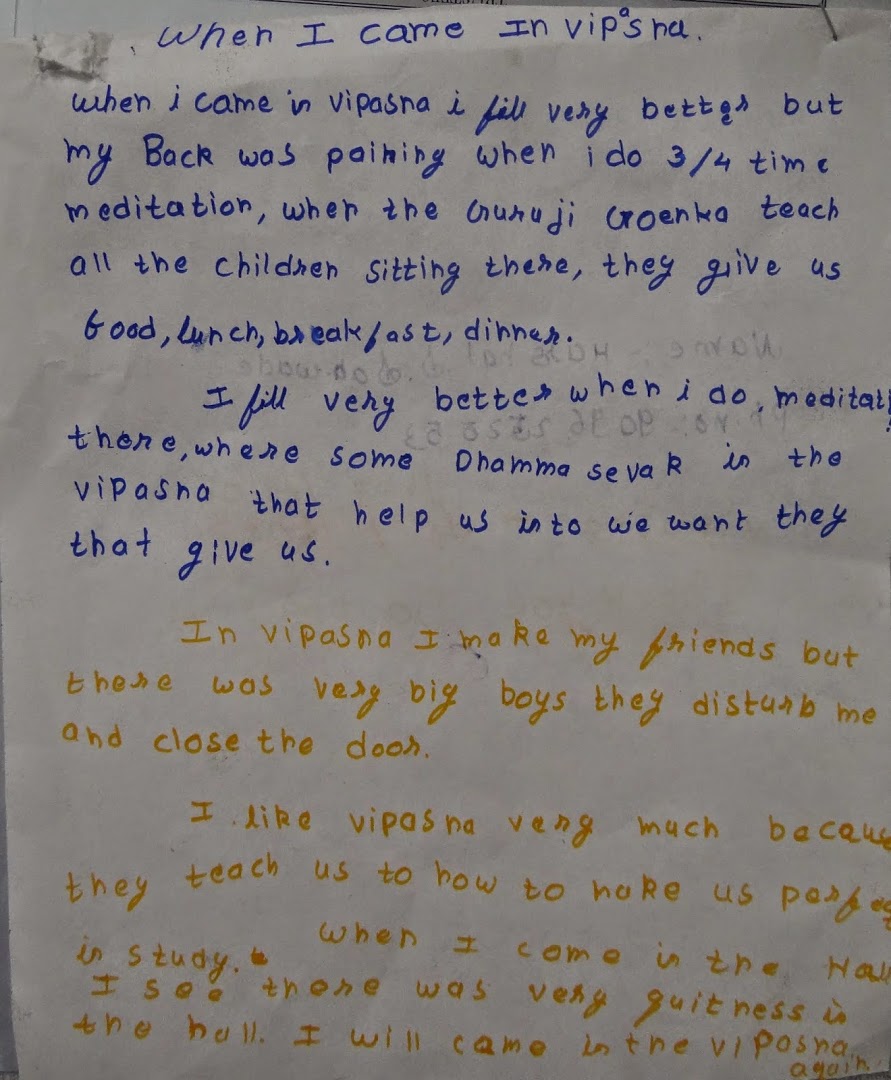 When I came In vipasna.
when i came in vipasna i fill very better but
my Back was paining when i do 3/4 time
meditation, when the Guruji Goenka teach
all the children sitting there, they give us
Good, lunch, breakfast, dinner.
I fill very better when i do, meditati
there, where some Dhamma sevak in the
vipasna that help us into we want they
that give us.
In vipasna I make my friends but
there was very big boys they disturb me
and close the door.
I like vipasna very much becau
they teach us to how to make us perfec
in study. When I come in the Hall
I see there was very quitness in
the hall. I will came in the vipasna
again.